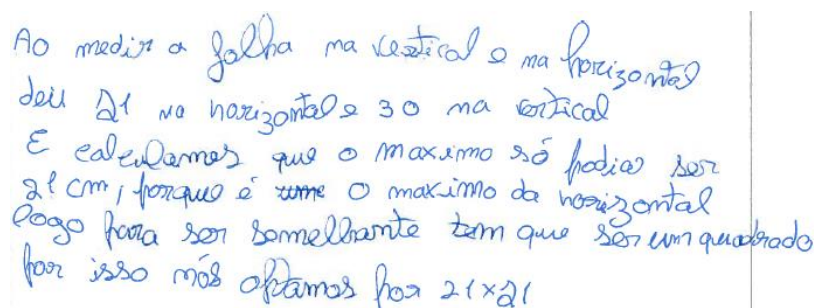 Ao medir a folha na vertical e na horizontal
deu 21 na horizontal e 30 na vertical
E calculamos que o maximo só podia ser
21 cm, porque é o maximo da horizontal
logo para ser semelhante tem que ser um quadrado
por isso nós optamos por 21x21